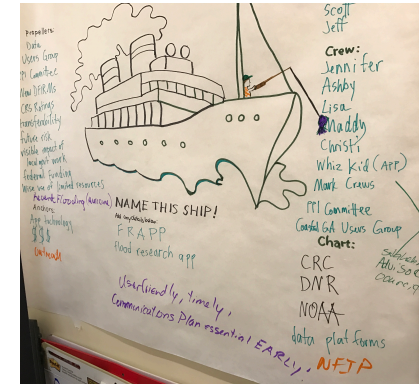 Propellers:
Data
Users Group
PPI Committee
New DFIRMs
CRS Ratings
transferability
future risk
visible impact of
local govt work
federal funding
wise use of limited resources
Recent Flooding (Hurricanes)
Anchors:
App technology
$$$
Outreach
NAME THIS SHIP!
FRAPP
flood research app
Userfriendly, timely,
Communications Plan essential EARLY,
Scott
Jeff
Crew:
Jennifer
Ashby
Lisa
Maddy
Christi
Whiz Kid (APP)
Mark Crews
PPI Committee
Coastal GA Users Group
Chart:
CRC
DNR
NOAA
data platforms
NFIP